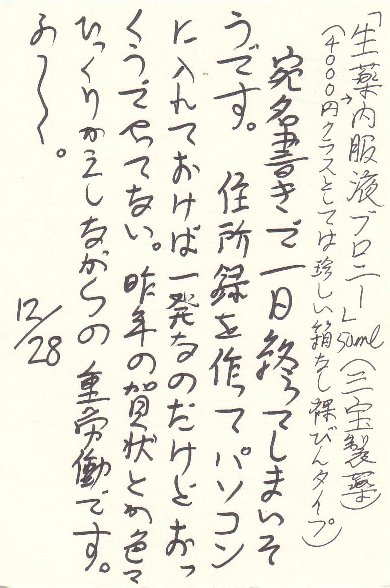 「生薬内服液ブロニー」50ml（三宝製薬）
（4000円クラスとしては珍しい箱なし裸びんタイプ）
宛名書きで一日終ってしまいそ
うです。　住所録を作ってパソコン
に入れておけば一発なのだけどおっ
くうでやってない。昨年の賀状とか色々
ひっくりかえしながらの重労働です。
ふ〜〜。
12/28